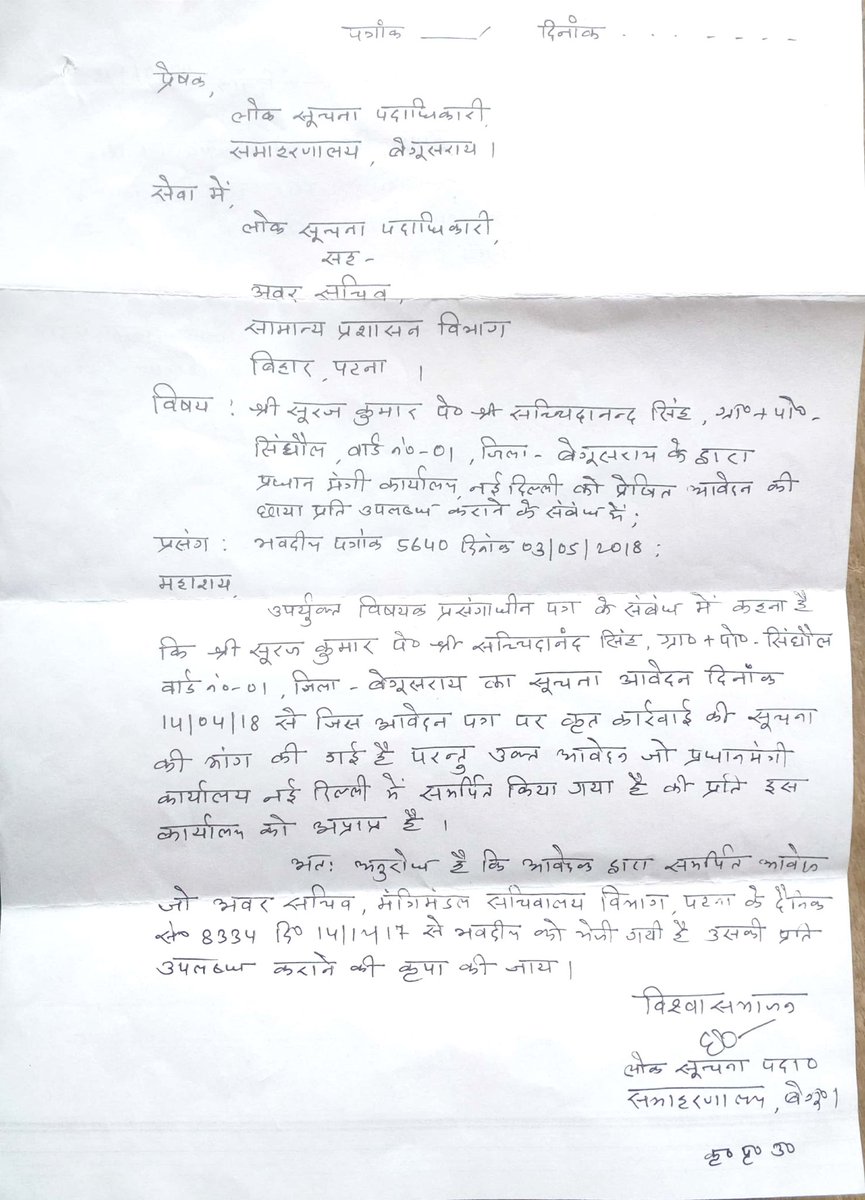 पत्रांक ____/ दिनांक . . . . - - - -
प्रेषक,
लोक सूचना पदाधिकारी,
समाहरणालय, बेगूसराय ।
सेवा में,
लोक सूचना पदाधिकारी,
सह-
अवर सचिव,
सामान्य प्रशासन विभाग
बिहार, पटना ।
विषय : श्री सूरज कुमार पे० श्री सच्चिदानन्द सिंह, ग्रा०+पो०-
सिंघौल, वार्ड नं०-01, जिला- बेगूसराय के द्वारा
प्रधान मंत्री कार्यालय, नई दिल्ली को प्रेषित आवेदन की
छाया प्रति उपलब्ध कराने के संबंध में;
प्रसंग : भवदीय पत्रांक 5640 दिनांक 03/05/2018;
महाशय,
उपर्युक्त विषयक प्रसंगाधीन पत्र के संबंध में कहना है
कि श्री सूरज कुमार पे० श्री सच्चिदानंद सिंह, ग्रा०+पो०-सिंघौल
वार्ड नं०-01, जिला- बेगूसराय का सूचना आवेदन दिनांक
14/04/18 से जिस आवेदन पत्र पर कृत कार्रवाई की सूचना
की मांग की गई है परन्तु उक्त आवेदन जो प्रधानमंत्री
कार्यालय नई दिल्ली में समर्पित किया गया है की प्रति इस
कार्यालय को अप्राप्त है ।
अतः अनुरोध है कि आवेदक द्वारा समर्पित आवेदन
जो अवर सचिव, मंत्रिमंडल सचिवालय विभाग, पटना के
सं० 8334 दि० से भवदीय को भेजी गयी है उसकी प्रति
उपलब्ध कराने की कृपा की जाय ।
विश्वासभाजन
लोक सूचना पदा०
समाहरणालय, बेगू० ।
कृ० पृ० उ०